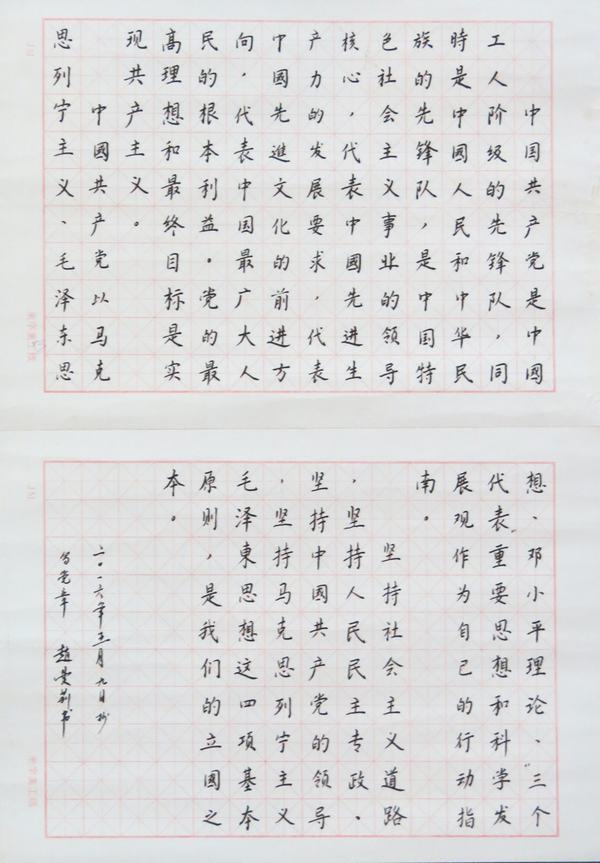 中国共产党是中國
工人阶级的先锋队，同
時是中國人民和中华民
族的先锋队，是中国特
色社会主义事业的领导
核心，代表中國先进生
产力的发展要求，代表
中國先進文化的前进方
向，代表中国最广大人
民的根本利益。党的最
高理想和最终目标是实
现共产主义。
中國共产党以马克
思列宁主义、毛泽东思
想、邓小平理论、“三个
代表”重要思想和科学发
展观作为自己的行动指
南。
坚持社会主义道路
，坚持人民民主专政，
坚持中國共产党的领导
，坚持马克思列宁主义
毛泽東思想这四项基本
原则，是我们的立國之
本。
二〇一六年五月九日抄
党章